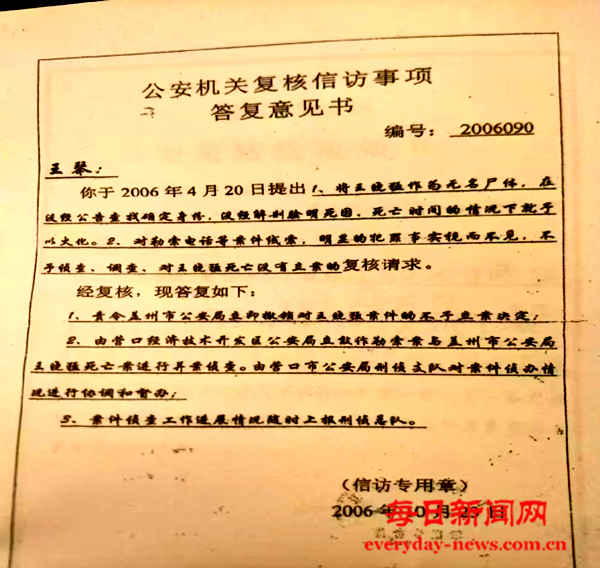 公安机关复核信访事项
答复意见书
编号： 2006090
王琴：
你于 2006 年 4 月 20 日提出 1、将王晓猛作为无名尸体，在
没经公告查找确定身份，没经解剖验明死因、死亡时间的情况下就予
以火化。2、对勒索电话等案件线索，明显的犯罪事实视而不见，不
予侦查、调查、对王晓猛死亡没有立案的复核请求。
经复核，现答复如下：
1、责令盖州市公安局立即撤销对王晓猛案件的不予立案决定；
2、由营口经济技术开发区公安局立敲诈勒索案与盖州市公安局
王晓猛死亡案进行并案侦查。由营口市公安局刑侦支队对案件侦办情
况进行协调和督办；
3、案件侦查工作进展情况随时上报刑侦总队。
（信访专用章）
2006 年 10 月 日
每日新闻网
everyday-news.com.cn